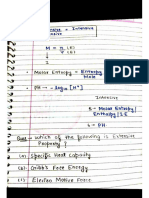 = Intensive
M = n (E)
V (E)
• Molar Entropy = Entropy
Mole
• PH → - log10 [H+]
Intensive
S - Molar Entropy/
Enthalpy/I.E
L - PH.
Ques - which of the following is Extensive
Property ?
(A) Specific Heat Capacity
(B) Gibb's Free Energy
(C) Electro Motive Force